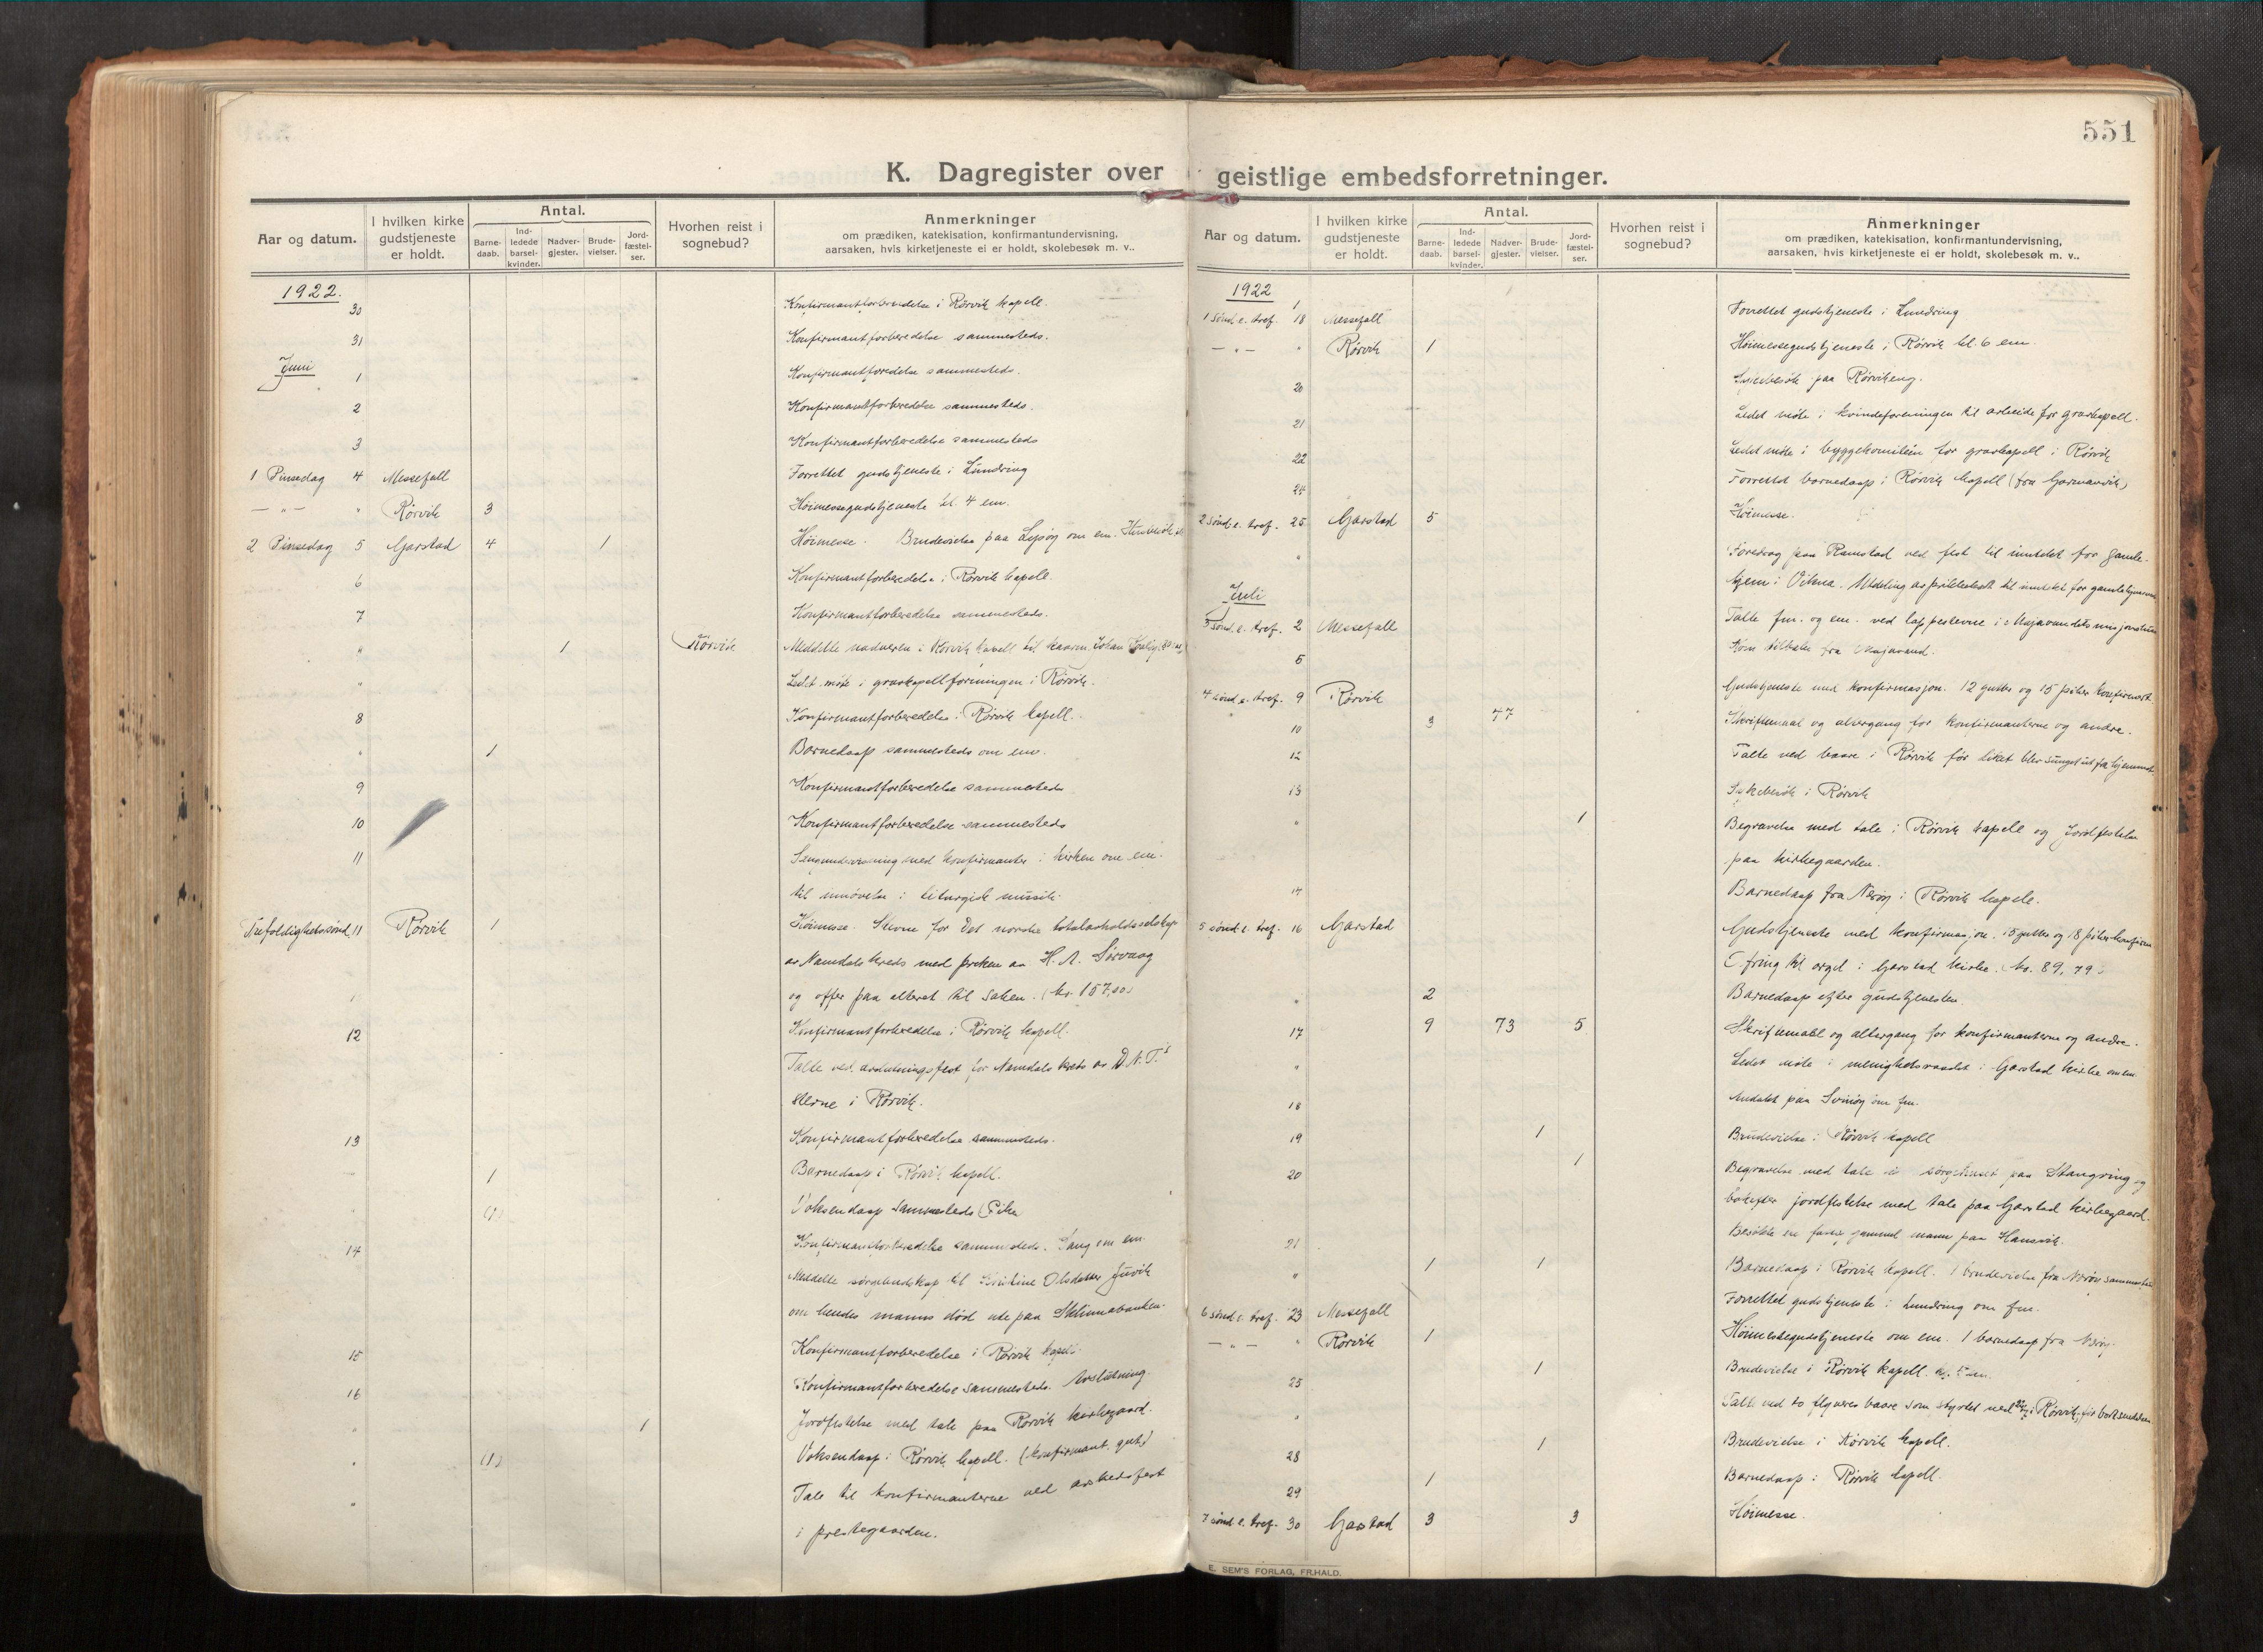 551
K. Dagregister over geistlige embedsforretninger.
Aar og datum.
I hvilken kirke gudstjeneste er holdt.
Antal.
Barne-daab.
Ind-ledede barsel-kvinder.
Nadver-gjester.
Brude-vielser.
Jord-fæstel-ser.
Hvorhen reist i sognebud?
Anmerkninger
om prædiken, katekisation, konfirmantundervisning,
aarsaken, hvis kirketjeneste ei er holdt, skolebesøk m. v..
1922.
30 Konfirmantforberedelse i Rørvik kapell.
31 Konfirmantforberedelse sammesteds.
Juni
1 Konfirmantforedelse sammesteds.
2 Konfirmantforberedelse sammesteds.
3 Konfirmantforberedelse sammesteds
1 Pinsedag 4 Messefall Forrettet gudstjeneste i Lundring
— " — " Rørvik 3 Høimessegudstjeneste kl. 4 em.
2 Pinsedag 5 Garstad 4 1 Høimesse. Brudevielse paa Lysøy om em.
6 Konfirmantforberedelse i Rørvik kapell.
7 Konfirmantforberedelse sammesteds.
" 1 Rørvik Meddelte nadveren i Rørvik kapell til Johan
" Ledet møte i gravkapellforeningen i Rørvik.
8 Konfirmantforberedelse i Rørvik kapell.
" 1 Barnedaap sammesteds om em.
9 Konfirmantforberedelse sammesteds
10 Konfirmantforberedelse sammesteds
11 Sangundervisning med konfirmanter i kirken om em.
til innøvelse i liturgisk musik.
Trefoldighetssønd. 11 Rørvik 1 Høimesse. Stevne for Det norske totalavholdsselskap
av Namdals kreds med preken av H. A. Sørvaag
og offer paa alteret til saken. (kr. 157,00)
12 Konfirmantforberedelse i Rørvik kapell.
Talte ved avslutningsfest for Namdals krets av D.N.T.'s
stevne i Rørvik.
13 Konfirmantforberedelse sammesteds.
" 1 Barnedaap i Rørvik kapell.
" (1) Voksendaap sammesteds (Pike
14 Konfirmantforberedelse sammesteds. Sang om em.
Meddelte sørgebudskap til Kristine Olsdatter Juvik
om hendes manns død ute paa Sklinnabanken.
15 Konfirmantforberedelse i Rørvik kapell.
16 Konfirmantforberedelse sammesteds. Avslutning.
" 1 Jordfestelse med tale paa Rørvik kirkegaard.
" (1) Voksendaap i Rørvik kapell. (konfirmant, gut)
" Tale til konfirmanterne ved avskedsfest
i prestegaarden.
Aar og datum.
I hvilken kirke gudstjeneste er holdt.
Antal.
Barne-daab.
Ind-ledede barsel-kvinder.
Nadver-gjester.
Brude-vielser.
Jord-fæstel-ser.
Hvorhen reist i sognebud?
Anmerkninger
om prædiken, katekisation, konfirmantundervisning,
aarsaken, hvis kirketjeneste ei er holdt, skolebesøk m. v..
1922
1 sønd. e. tref. 18 Messefall Forrettet gudstjeneste i Lundring
— " — " Rørvik 1 Høimessegudstjeneste i Rørvik kl. 6 em.
20 paa Rørvikeng.
21 Ledet møte i kvindeforeningen til arbeide for gravkapell.
22 Ledet møte i byggekomiteen for gravkapell i Rørvik
24 Forrettet barnedaap i Rørvik kapell (fra Garmanvik)
2 sønd. e. tref. 25 Garstad 5 Høimesse.
" Foredrag paa Ramstad ved fest til inntekt for gamle-
hjem i Vikna.
Juli
3 sønd. e. tref. 2 Messefall Talte fm. og em. ved lappestevne i Majavandets
5 Kom tilbake fra Majavand.
4 sønd. e. tref. 9 Rørvik Gudstjeneste med konfirmasjon. 12 gutter og 15 piker konfirmert.
10 3 47 Skriftemaal og altergang for konfirmanterne og andre.
12 Talte ved baare i Rørvik før liket blev sunget ut fra hjemmet.
13 Sykebesøk i Rørvik
" 1 Begravelse med tale i Rørvik kapell og jordfestelse
paa kirkegaarden.
14 Barnedaap fra Nærøy i Rørvik kapell.
5 sønd. e. tref. 16 Garstad Gudstjeneste med konfirmasjon. 15 gutter og 18 piker konfirm
til orgel i Garstad kirke. kr. 89,79.
" 2 Barnedaap efter gudstjenesten.
17 9 73 5 Skriftemaal og altergang for konfirmanterne og andre.
" Ledet møte i menighetsraadet i Garstad kirke om em.
18 Andakt paa Svinøy om fm.
19 1 Brudevielse i Rørvik kapell
20 1 Begravelse med tale i sørgehuset paa Stangring og
bakefter jordfestelse med tale paa Garstad kirkegaard.
21 Besøkte en gammel mann paa Hansvik.
" 1 1 Barnedaap i Rørvik kapell. 1 brudevielse fra Nærøy sammesteds
6 sønd. e. tref. 23 Messefall Forrettet gudstjeneste i Lundring om fm.
— " — " Rørvik 1 Høimessegudstjeneste om em. 1 barnedaap fra Nærøy.
25 1 Brudevielse i Rørvik kapell kl. 5 em.
" Talte ved to flyveres baare som styrtet ned i Rørvik, før
28 1 Brudevielse i Rørvik kapell.
29 1 Barnedaap i Rørvik kapell.
7 sønd. e. tref. 30 Garstad 3 3 Høimesse.
E. SEM'S FORLAG, FR.HALD.